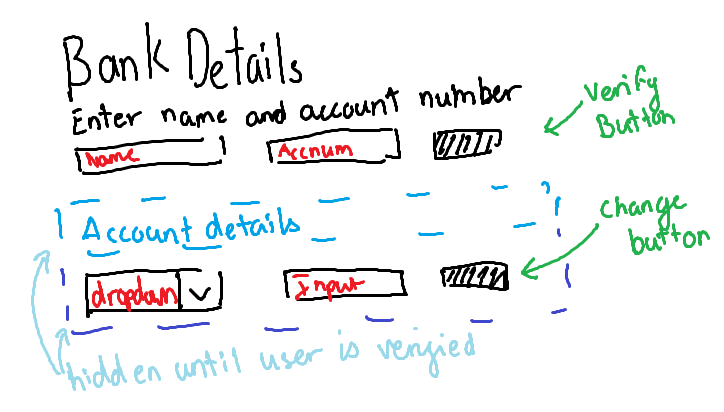 Bank Details
Enter name and account number
Name Accnum
verify
Button
Account details
change
button
dropdown Input
hidden until user is verified